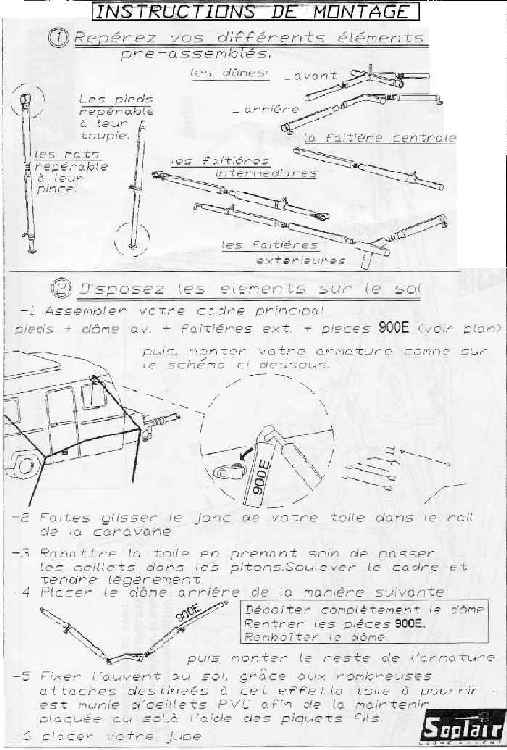 INSTRUCTIONS DE MONTAGE
1 Repérez vos différents éléments
pré-assemblés.
les dômes: _avant
_arrière
Les pieds
repérable
à leur
toupie.
la faitière centrale
les mats
repérable
à leur
pince.
les faitières
intermédiaires
les faitières
extérieures
2 Disposez les éléments sur le sol
-1 Assembler votre cadre principal
pieds + dôme av. + faitières ext. + pieces 900E (voir plan)
puis monter votre armature comme sur
le schéma ci dessous.
900E
-2 Faites glisser le jonc de votre toile dans le rail
de la caravane
-3 Rabattre la toile en prenant soin de passer
les oeillets dans les pitons.Soulever le cadre et
tendre légèrement
-4 Placer le dôme arrière de la manière suivante
900E
Déboîter complètement le dôme
Rentrer les pièces 900E.
Remboîter le dôme.
puis monter le reste de l'armature
-5 Fixer l'auvent au sol, grâce aux nombreuses
attaches destinées à cet effet.la toile à pourrir
est munie d'oeillets PVC afin de la maintenir
plaquée au sol à l'aide des piquets fils
-6 placer votre jupe
Soplair